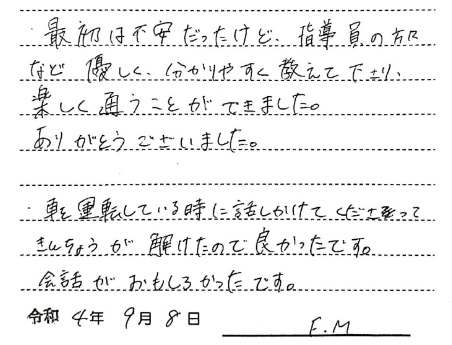 ・最初は不安だったけど、指導員の方々
など優しく、分かりやすく教えて下さり、
楽しく通うことができました。
ありがとうございました。
・車を運転している時に話しかけてくださって
きんちょうが解けたので良かったです。
会話がおもしろかったです。
令和 4年 9月 8日
F.M